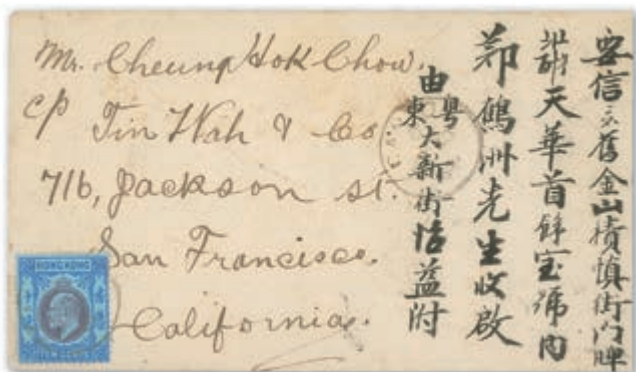 Mr. Cheung Hok Chow.
c/o Tin Wah & Co
716, Jackson st.
San Francisco.
California.
HONG KONG
安信至舊金山積慎街門牌
天華首飾宝號內
鶴洲先生收啟
由粤東大新街怡益付